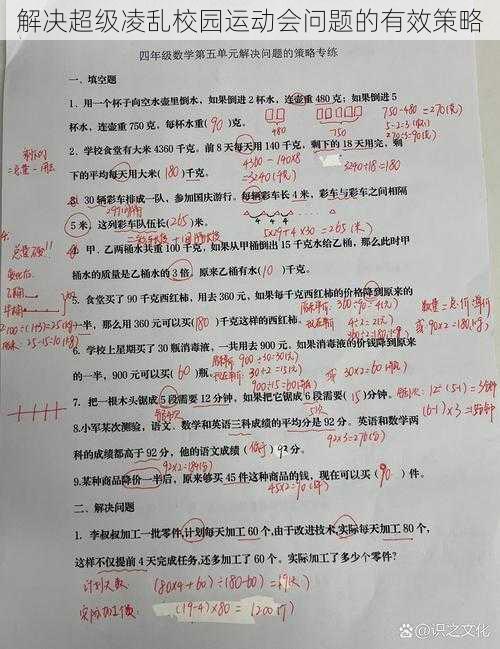 解决超级凌乱校园运动会问题的有效策略
四年级数学第五单元解决问题的策略专练
一、填空题
1、用一个杯子向空水壶里倒水，如果倒进2杯水，连壶重480克；如果倒进5
杯水，连壶重750克，每杯水重（90）克。
480
750
750-480=270(克)
5-2=3(杯)
270÷3=90(克)
2、学校食堂有大米4360千克。前8天每天用140千克，剩下的18天用完，剩
下的平均每天用大米（180）千克。
4360-140×8
=3240(千克)
3240÷18=180
3、30辆彩车排成一队，参加国庆游行。每辆彩车长4米，彩车与彩车之间相隔
5米，这列彩车队伍长（265）米。
4 4 4
5×29+4×30=265(米)
4、甲、乙两桶水共重100千克，如果从甲桶倒出15千克水给乙桶，那么此时甲
桶水的质量是乙桶水的3倍，原来乙桶有水（10）千克。
5、食堂买了90千克西红柿，用去360元，如果每千克西红柿的价格降到原来的
一半，那么用360元可以买（180）千克这样的西红柿。
360÷90=4(元)
4÷2=2(元)
数量=总价÷单价
或90×2=180(千克)
6、学校上星期买了30瓶消毒液，一共用去900元。如果消毒液的价钱降到原来
的一半，900元可以买（60）瓶。
900÷30=30(元)
30÷2=15(元)
900÷15=60(瓶)
或30×2=60(瓶)
7、把一根木头锯成5段需要12分钟，如果把它锯成6段需要（15）分钟。
12÷(5-1)=3分钟
(6-1)×3=15分钟
8.小军某次测验，语文、数学和英语三科成绩的平均分是92分。英语和数学两
科的成绩都高于92分，他的语文成绩（低于）92分。
92×3=276(分)
92×2=184(分)
9.某种商品降价一半后，原来够买45件这种商品的钱，现在可以买（90）件。
45×2=90(件)
二、解决问题
1、李叔叔加工一批零件，计划每天加工60个，由于改进技术，实际每天加工80个，
这样不仅提前4天完成任务，还多加工了60个。实际加工了多少个零件？
计划天数 (80×4+60)÷(80-60)=19(天)
实际加工 (19-4)×80=1200个
@识之文化